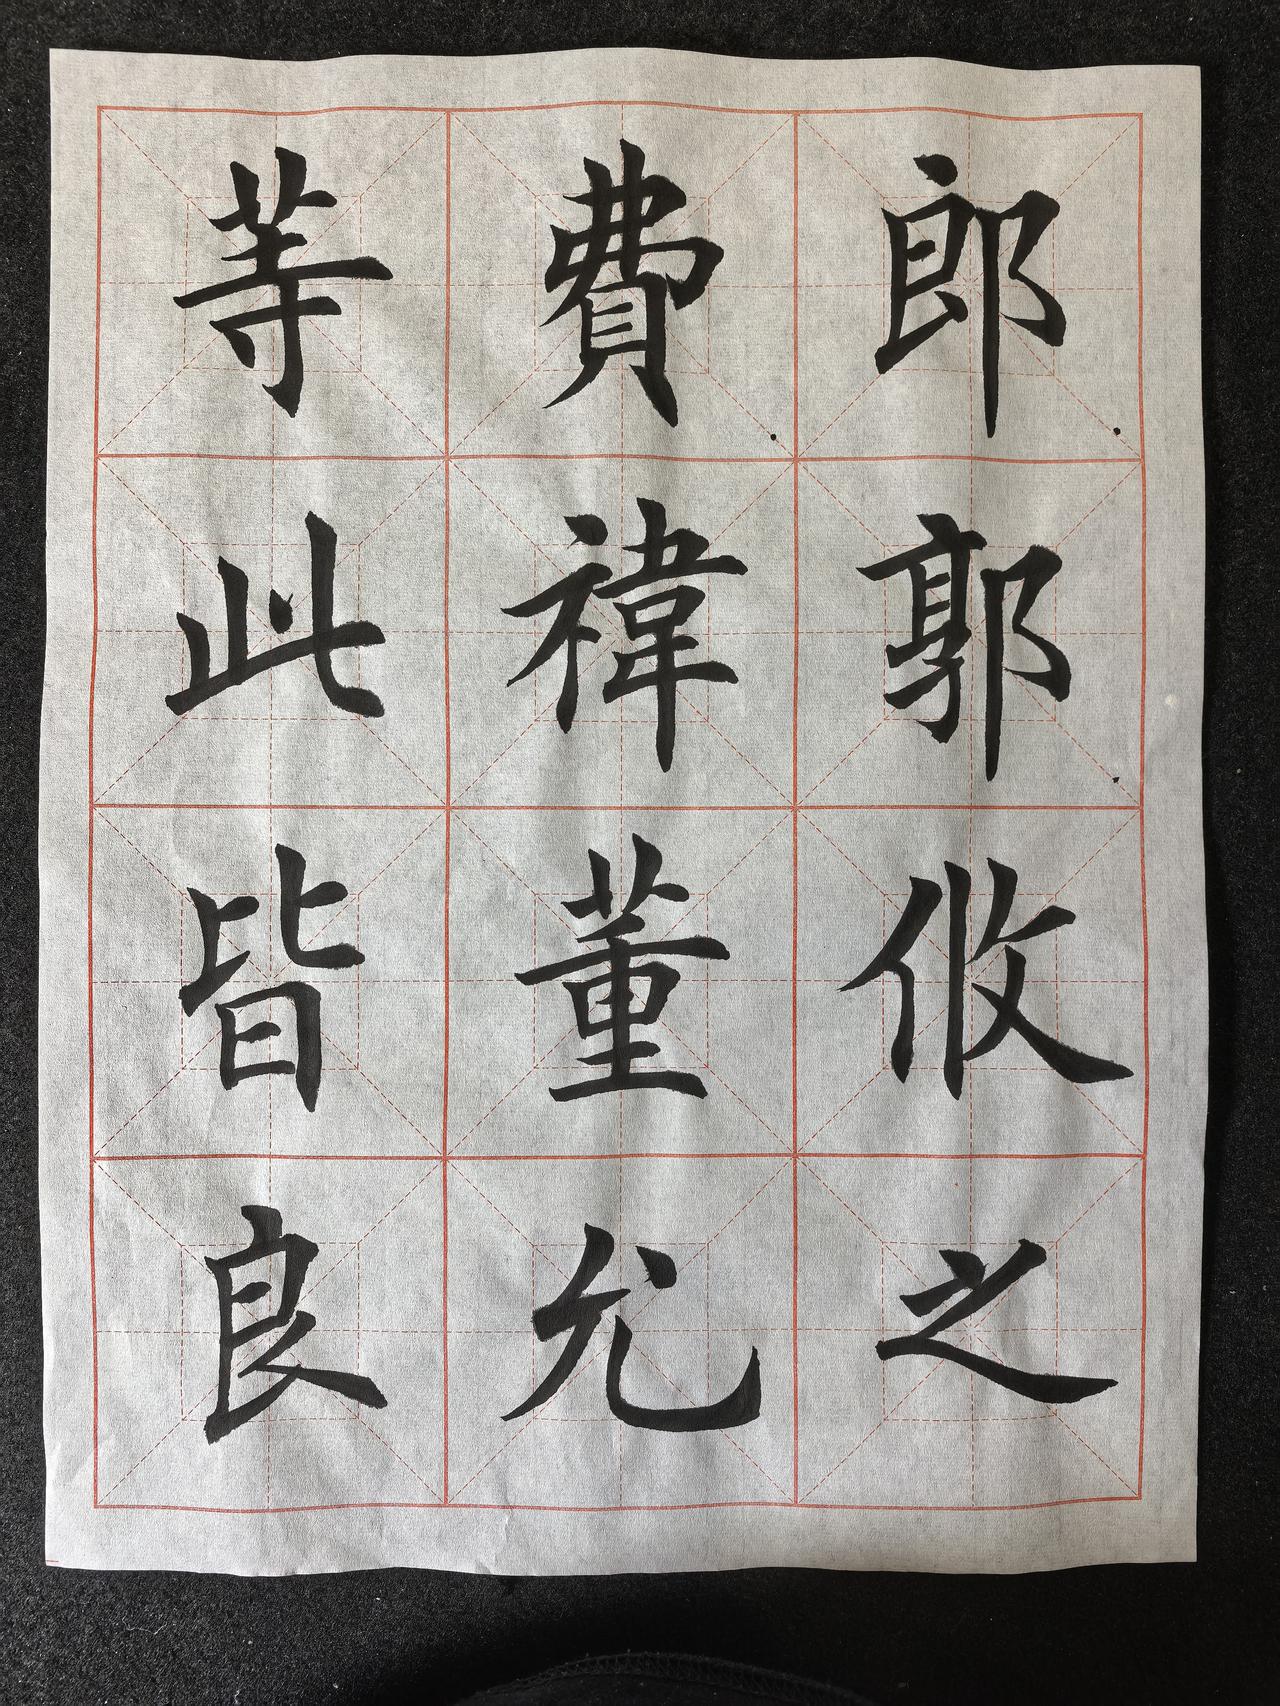 郎郭攸之
費禕董允
等此皆良